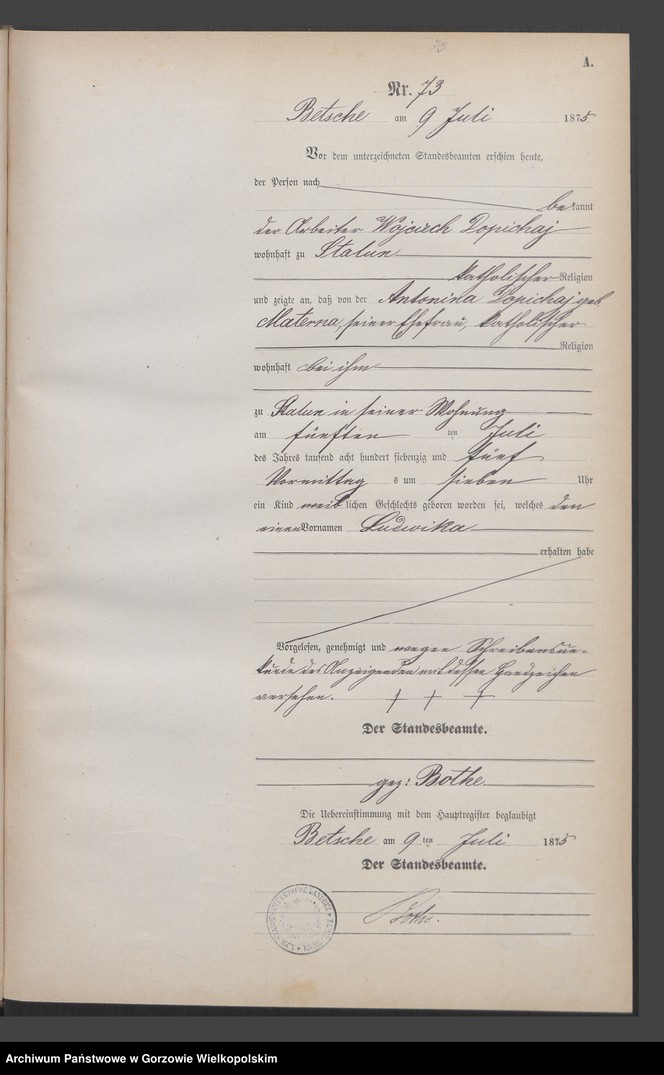 73
A.
Nr. 73
Betsche am 9 Juli 1875
Vor dem unterzeichneten Standesbeamten erschien heute,
der Person nach
bekannt
der Arbeiter Wojciech Dopichaj
wohnhaft zu Stalun
katholischer Religion
und zeigte an, daß von der Antonina Dopichaj geb.
Materna, seiner Ehefrau, katholischer
Religion
wohnhaft bei ihm
zu Stalun in seiner Wohnung
am fünften ten Juli
des Jahres tausend acht hundert siebenzig und fünf
Vormittag s um sieben Uhr
ein Kind weiblichen Geschlechts geboren worden sei, welches den
einen Vornamen Ludwika
erhalten habe
Vorgelesen, genehmigt und wegen Schreibensun-
kunde des Anzeigenden mit dessen Handzeichen
versehen. + + +
Der Standesbeamte.
gez: Bothe
Die Uebereinstimmung mit dem Hauptregister beglaubigt
Betsche am 9 ten Juli 1875
Der Standesbeamte.
Bothe.
Archiwum Państwowe w Gorzowie Wielkopolskim